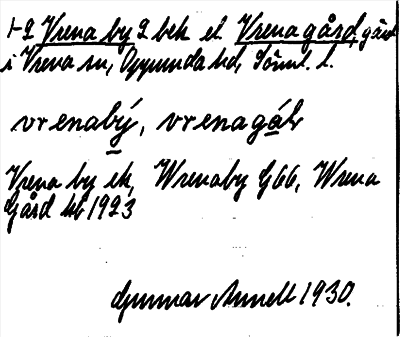 1-2 Vrena by 2 bek el Vrena gård, gård
i Vrena sn, Oppunda hd, Söml. l.
vrenabý, vrenagá
Vrena by ek, Wrenaby G66, Wrena
Gård kb 1923
Gunnar Annell 1930.